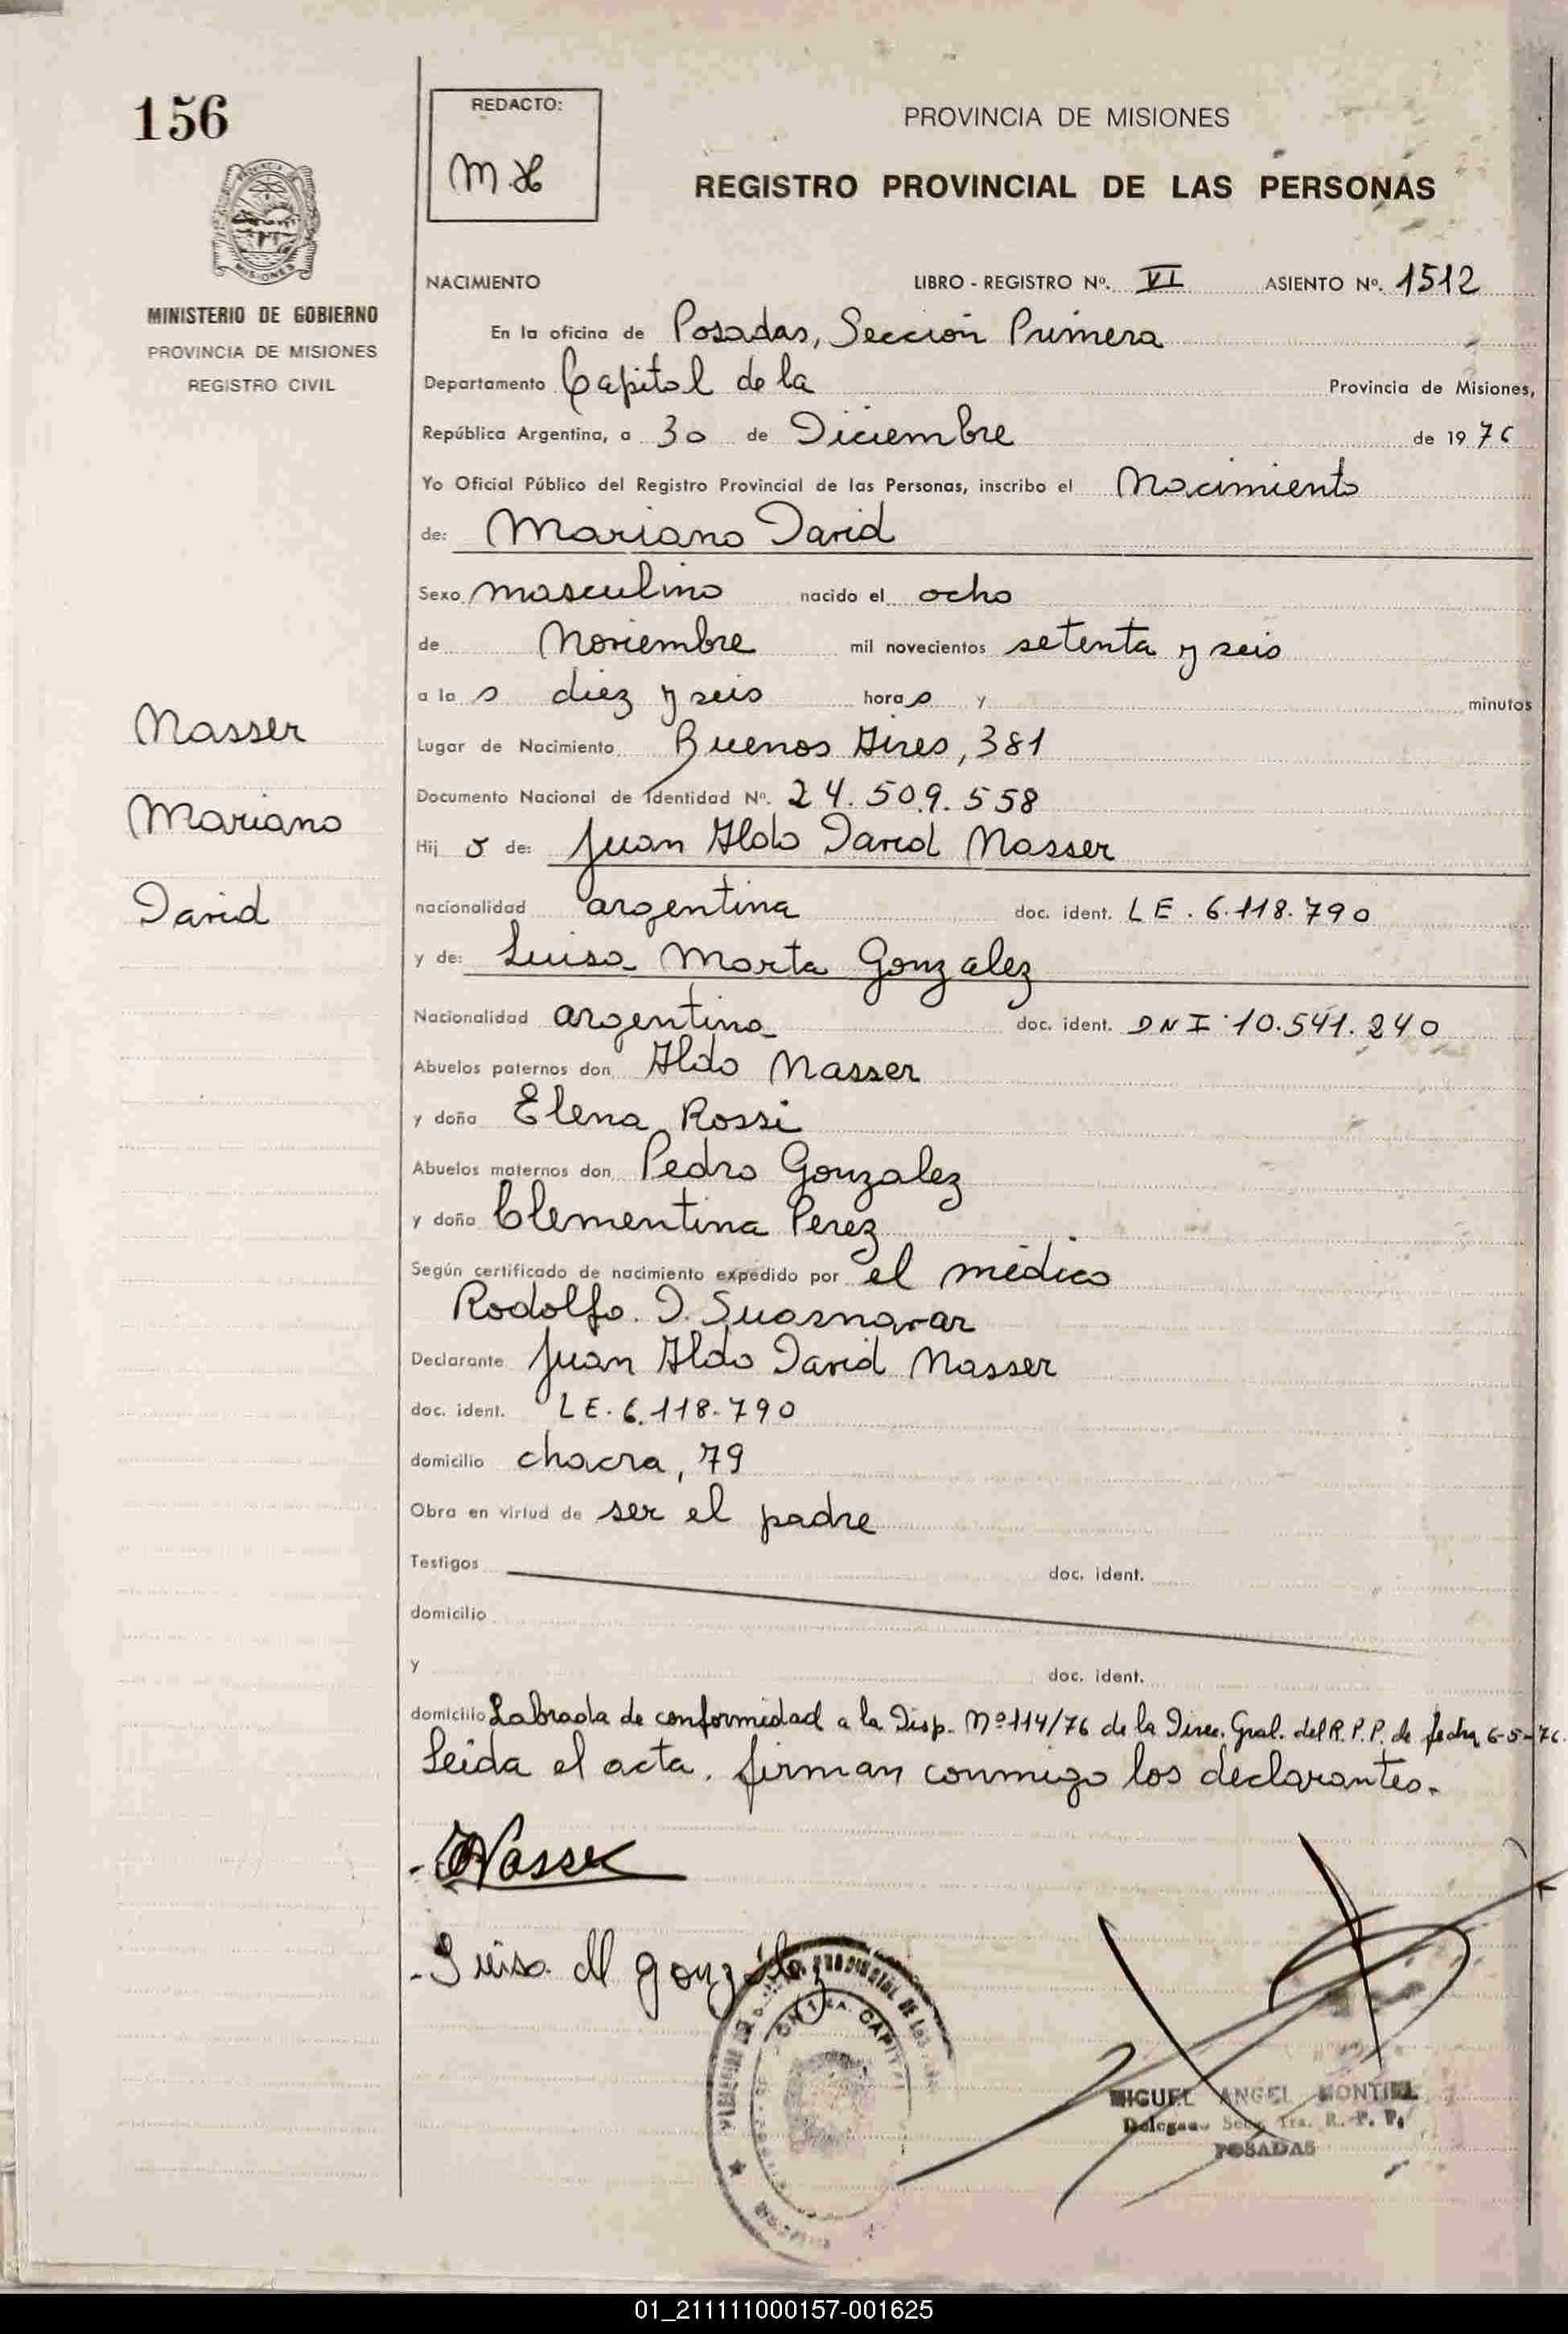 156
REDACTO:
M H
PROVINCIA DE MISIONES
REGISTRO PROVINCIAL DE LAS PERSONAS
MINISTERIO DE GOBIERNO
PROVINCIA DE MISIONES
REGISTRO CIVIL
NACIMIENTO LIBRO - REGISTRO Nº. VI ASIENTO Nº. 1512
En la oficina de Posadas, Sección Primera
Departamento Capital de la Provincia de Misiones,
República Argentina, a 30 de Diciembre de 1976
Yo Oficial Público del Registro Provincial de las Personas, inscribo el Nacimiento
de: Mariano David
Sexo masculino nacido el ocho
de Noviembre mil novecientos setenta y seis
a las diez y seis horas y minutos
Lugar de Nacimiento Buenos Aires, 381
Documento Nacional de Identidad Nº. 24.509.558
Hijo de: Juan Aldo David Nasser
nacionalidad argentina doc. ident. LE. 6.118.790
y de: Luisa Marta Gonzalez
Nacionalidad argentina doc. ident. DNI 10.541.240
Abuelos paternos don Aldo Nasser
y doña Elena Rossi
Abuelos maternos don Pedro Gonzalez
y doña Clementina Perez
Según certificado de nacimiento expedido por el médico
Rodolfo. D. Suasnavar
Declarante Juan Aldo David Nasser
doc. ident. LE. 6.118.790
domicilio chacra, 79
Obra en virtud de ser el padre
Testigos doc. ident.
domicilio
y doc. ident.
domicilio Labrada de conformidad a la Disp. Nº 114/76 de la Direc. Gral. del R.P.P. de fecha 6-5-76.
Leida el acta, firman conmigo los declarantes.
Nasser
Mariano
David
Nasser
Luisa M González
PROVINCIAL DE LAS
CAPITAL
MIGUEL ANGEL MONTIEL
Delegado Secc. 1ra. R. P. P.
POSADAS
01_211111000157-001625